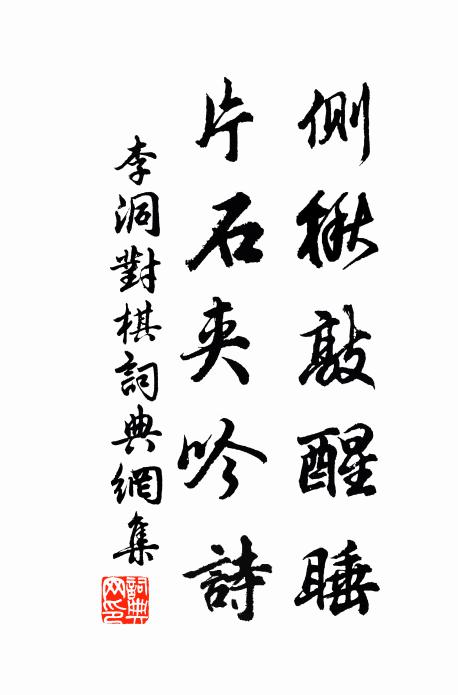 側楸敲醒睡
片石夾吟詩
李洞對棋詞典網集
詞典網印